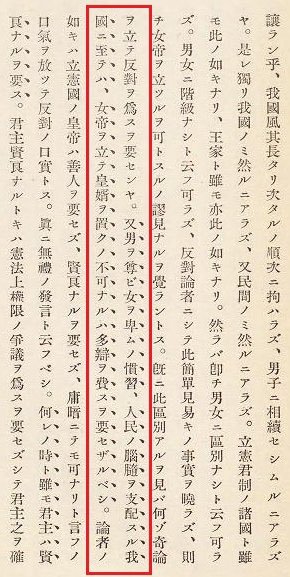 讓ラン乎、我國風其長タリ次タルノ順次ニ拘ハラズ、男子ニ相續セシムルニアラズ
ヤ。是レ獨リ我國ノミ然ルニアラズ、又民間ノミ然ルニアラズ。立憲君制ノ諸國ト雖
モ此ノ如キナリ、王家ト雖モ亦此ノ如キナリ。然ラバ卽チ男女ニ區別ナシト云フ可ラ
ズ。男女ニ階級ナシト云フ可ラズ、反對論者ニシテ此簡單見易キノ事實ヲ曉ラズ、則
チ女帝ヲ立ツルヲ可トスルノ謬見ナルヲ覺ラントス。旣ニ此區別アルヲ見バ何ゾ奇論
ヲ立テ反對ヲ爲スヲ要セシヤ。又男ヲ尊ビ女ヲ卑ムノ慣習、人民ノ腦髓ヲ支配スル我
國ニ至テハ、女帝ヲ立テ皇婿ヲ置クノ不可ナルハ多辯ヲ費スヲ要セザルベシ。論者ノ
如キハ立憲國ノ皇帝ハ善人ヲ要セズ、賢眞ナルヲ要セズ、庸暗ニテモ可ナリト言フノ
口氣ヲ放ツテ反對ノ口實トス。眞ニ無禮ノ發言ト云フベシ。何レノ時ト雖モ君主ハ賢
眞ナルヲ要ス。君主賢眞ナルトキハ憲法上權限ノ爭議ヲ爲スヲ要セズシテ君主之ヲ確